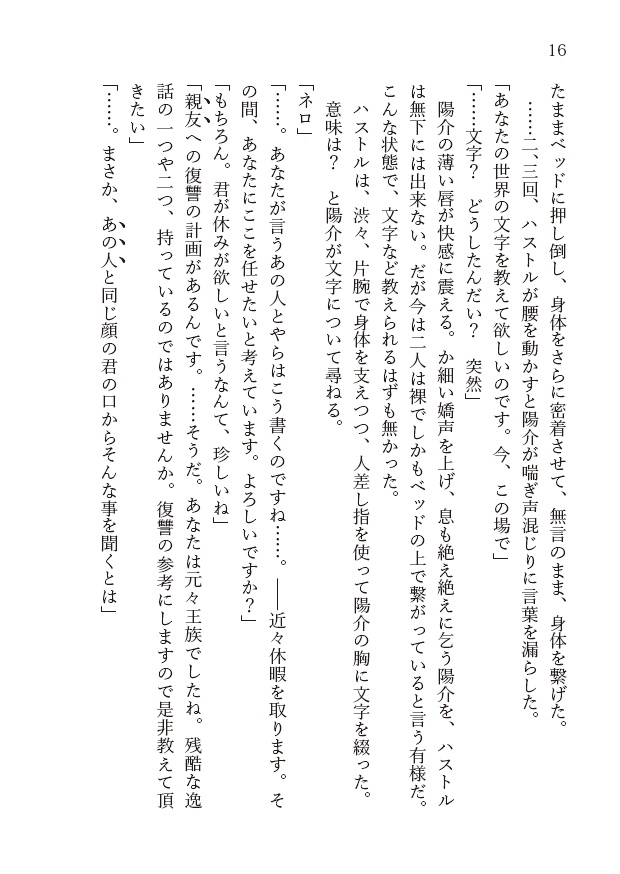 16
たままベッドに押し倒し、身体をさらに密着させて、無言のまま、身体を繋げた。
……二、三回、ハストルが腰を動かすと陽介が喘ぎ声混じりに言葉を漏らした。
「あなたの世界の文字を教えて欲しいのです。今、この場で」
「……文字？　どうしたんだい？　突然」
陽介の薄い唇が快感に震える。か細い嬌声を上げ、息も絶え絶えに乞う陽介を、ハストル
は無下には出来ない。だが今は二人は裸でしかもベッドの上で繋がっていると言う有様だ。
こんな状態で、文字など教えられるはずも無かった。
ハストルは、渋々、片腕で身体を支えつつ、人差し指を使って陽介の胸に文字を綴った。
意味は？　と陽介が文字について尋ねる。
「ネロ」
「……。あなたが言うあの人とやらはこう書くのですね……。――近々休暇を取ります。そ
の間、あなたにここを任せたいと考えています。よろしいですか？」
「もちろん。君が休みが欲しいと言うなんて、珍しいね」
「親友への復讐の計画があるんです。……そうだ。あなたは元々王族でしたね。残酷な逸
話の一つや二つ、持っているのではありませんか。復讐の参考にしますので是非教えて頂
きたい」
「……。まさか、あの人と同じ顔の君の口からそんな事を聞くとは」